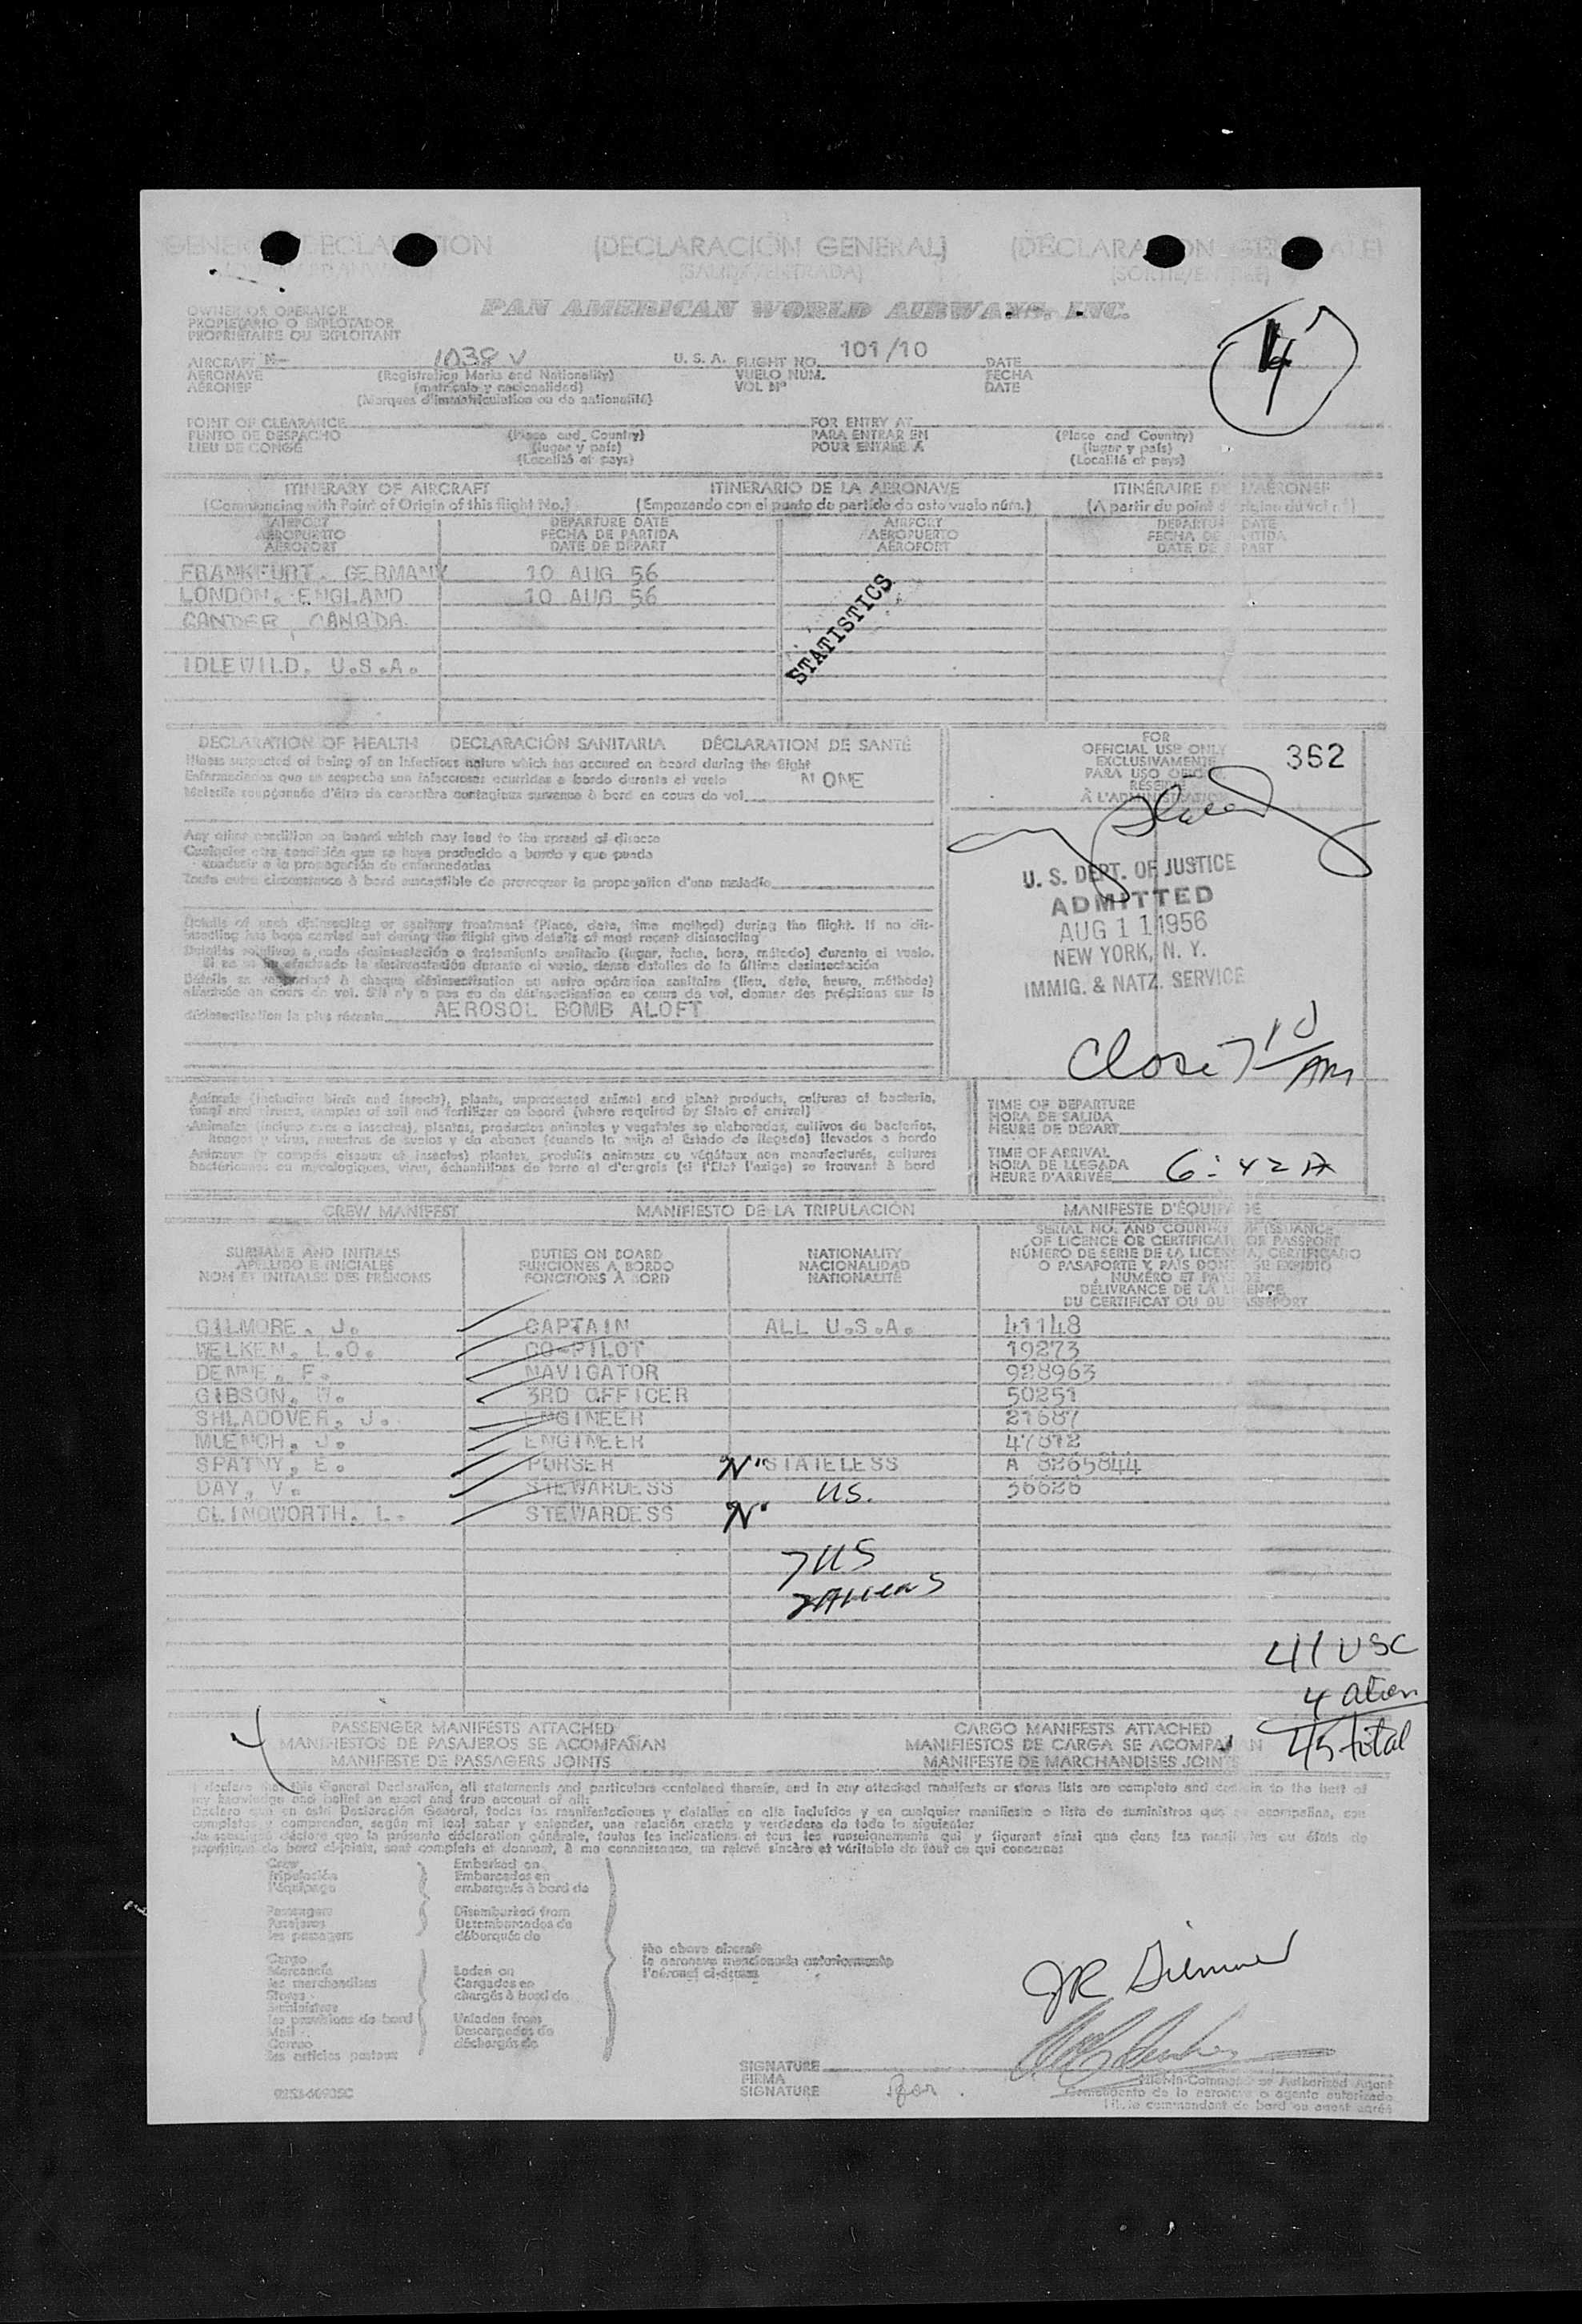 GENERAL DECLARATION (DECLARACIÓN GENERAL) (DÉCLARATION GÉNÉRALE)
(SALIDA/ENTRADA)
PAN AMERICAN WORLD AIRWAYS, INC.
OWNER OR OPERATOR
PROPIETARIO O EXPLOTADOR
PROPRIÉTAIRE OU EXPLOITANT
4
AIRCRAFT N- 1038 V U. S. A. FLIGHT NO. 101/10 DATE
AERONAVE (Registration Marks and Nationality) VUELO NÚM. FECHA
AÉRONEF (matrícula y nacionalidad) VOL Nº DATE
(Marques d'immatriculation ou de nationalité)
POINT OF CLEARANCE FOR ENTRY AT
PUNTO DE DESPACHO (Place and Country) PARA ENTRAR EN (Place and Country)
LIEU DE CONGÉ (lugar y país) POUR ENTRÉE À (lugar y país)
(Localité et pays) (Localité et pays)
ITINERARY OF AIRCRAFT ITINERARIO DE LA AERONAVE ITINÉRAIRE DE L'AÉRONEF
(Commencing with Point of Origin of this flight No.) (Empezando con el punto de partida de este vuelo núm.) (A partir du point d'origine du vol nº)
AIRPORT DEPARTURE DATE AIRPORT DEPARTURE DATE
AEROPUERTO FECHA DE PARTIDA AEROPUERTO FECHA DE PARTIDA
AÉROPORT DATE DE DÉPART AÉROPORT DATE DE DÉPART
FRANKFURT. GERMANY 10 AUG 56
LONDON. ENGLAND 10 AUG 56
GANDER, CANADA
IDLEWILD. U.S.A.
STATISTICS
DECLARATION OF HEALTH DECLARACIÓN SANITARIA DÉCLARATION DE SANTÉ
Illness suspected of being of an infectious nature which has occured on board during the flight
Enfermedades que se sospecha son infecciosas ocurridas a bordo durante el vuelo NONE
Maladie soupçonnée d'être de caractère contagieux survenue à bord en cours de vol
Any other condition on board which may lead to the spread of disease
Cualquier otra condición que se haya producido a bordo y que pueda
conducir a la propagación de enfermedades
Toute autre circonstance à bord susceptible de provoquer la propagation d'une maladie
Details of each disinsecting or sanitary treatment (Place, date, time method) during the flight. If no dis-
insecting has been carried out during the flight give details of most recent disinsecting
Detalles relativos a cada desinsectación o tratamiento sanitario (lugar, fecha, hora, método) durante el vuelo.
Si no se ha efectuado la desinsectación durante el vuelo, dense detalles de la última desinsectación
Détails se rapportant à chaque désinsectisation ou autre opération sanitaire (lieu, date, heure, méthode)
effectuée en cours de vol. S'il n'y a pas eu de désinsectisation en cours de vol, donner des précisions sur la
désinsectisation la plus récente AEROSOL BOMB ALOFT
FOR
OFFICIAL USE ONLY
EXCLUSIVAMENTE
PARA USO OFICIAL
RÉSERVÉ
À L'ADMINISTRATION
362
U. S. DEPT. OF JUSTICE
ADMITTED
AUG 11 1956
NEW YORK, N. Y.
IMMIG. & NATZ. SERVICE
Close 7 10 AM
Animals (including birds and insects), plants, unprocessed animal and plant products, cultures of bacteria,
fungi and viruses, samples of soil and fertilizer on board (where required by State of arrival)
Animales (incluso aves e insectos), plantas, productos animales y vegetales no elaborados, cultivos de bacterias,
hongos y virus, muestras de suelos y de abonos (cuando lo exija el Estado de llegada) llevados a bordo
Animaux (y compris oiseaux et insectes) plantes, produits animaux ou végétaux non manufacturés, cultures
bactériennes ou mycologiques, virus, échantillons de terre et d'engrais (si l'Etat l'exige) se trouvant à bord
TIME OF DEPARTURE
HORA DE SALIDA
HEURE DE DÉPART
TIME OF ARRIVAL
HORA DE LLEGADA
HEURE D'ARRIVÉE 6:42 A
CREW MANIFEST MANIFIESTO DE LA TRIPULACIÓN MANIFESTE D'ÉQUIPAGE
SURNAME AND INITIALS
APELLIDO E INICIALES
NOM ET INITIALES DES PRÉNOMS
DUTIES ON BOARD
FUNCIONES A BORDO
FONCTIONS À BORD
NATIONALITY
NACIONALIDAD
NATIONALITÉ
SERIAL NO. AND COUNTRY OF ISSUANCE
OF LICENCE OR CERTIFICATE OR PASSPORT
NÚMERO DE SERIE DE LA LICENCIA, CERTIFICADO
O PASAPORTE Y PAÍS DONDE SE EXPIDIÓ
NUMÉRO ET PAYS DE
DÉLIVRANCE DE LA LICENCE
DU CERTIFICAT OU DU PASSEPORT
GILMORE. J. CAPTAIN ALL U.S.A. 41148
WELKEN. L.O. CO-PILOT 19273
NAVIGATOR 928963
GIBSON. W. 3RD OFFICER 50251
SHLADOVER, J. ENGINEER 21687
MUENCH, J. ENGINEER
SPATNY, E. PURSER N. STATELESS A 8265844
DAY, V. STEWARDESS US. 36626
CLINDWORTH. L. STEWARDESS N.
7 US
2 Aliens
41 USC
4 alien
45 total
PASSENGER MANIFESTS ATTACHED CARGO MANIFESTS ATTACHED
MANIFIESTOS DE PASAJEROS SE ACOMPAÑAN MANIFIESTOS DE CARGA SE ACOMPAÑAN
MANIFESTE DE PASSAGERS JOINTS MANIFESTE DE MARCHANDISES JOINTS
I declare that this General Declaration, all statements and particulars contained therein, and in any attached manifests or stores lists are complete and certain to the best of
my knowledge and belief an exact and true account of all:
Declaro que en esta Declaración General, todas las manifestaciones y detalles en ella incluídos y en cualquier manifiesto o lista de suministros que se acompañan, son
completos y comprenden, según mi leal saber y entender, una relación exacta y verdadera de todo lo siguiente:
Je soussigné déclare que la présente déclaration générale, toutes les indications et tous les renseignements qui y figurent ainsi que dans les manifestes ou états de
provisions de bord ci-joints, sont complets et donnent, à ma connaissance, un relevé sincère et véritable de tout ce qui concerne:
Crew
Tripulación
l'équipage
Embarked on
Embarcados en
embarqués à bord de
Passengers
Pasajeros
les passagers
Disembarked from
Desembarcados de
débarqués de
Cargo
Mercancía
les marchandises
Stores
Suministros
les provisions de bord
Mail
Correo
les articles postaux
Laden on
Cargados en
chargés à bord de
Unladen from
Descargados de
déchargés de
the above aircraft
la aeronave mencionada anteriormente
l'aéronef ci-dessus
JR Gilmore
SIGNATURE
FIRMA
SIGNATURE for
Pilot-in-Command or Authorized Agent
Comandante de la aeronave o agente autorizado
le commandant de bord ou agent agréé